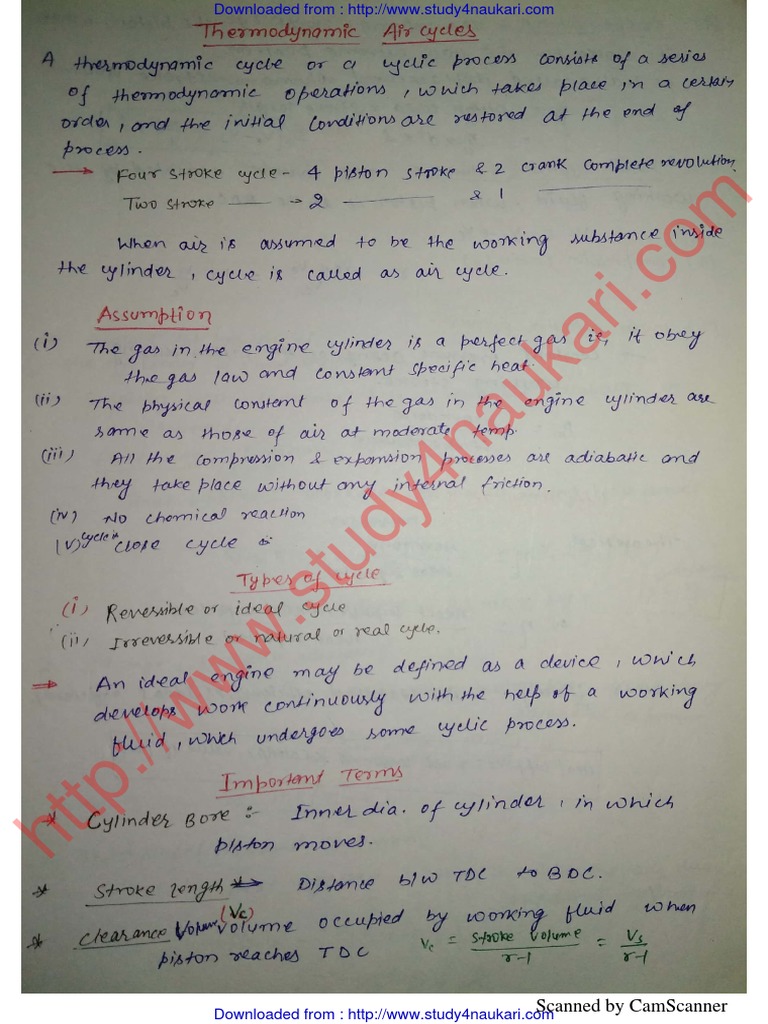 Downloaded from : http://www.study4naukari.com
Thermodynamic Air cycles
A thermodynamic cycle or a cyclic process consists of a series
of thermodynamic operations, which takes place in a certain
order, and the initial conditions are restored at the end of
process.
→ Four stroke cycle - 4 piston stroke & 2 crank complete revolution.
Two stroke —— → 2 —— & 1 ——
When air is assumed to be the working substance inside
the cylinder, cycle is called as air cycle.
Assumption
(i) The gas in the engine cylinder is a perfect gas ie, it obey
the gas law and constant specific heat.
(ii) The physical constant of the gas in the engine cylinder are
same as those of air at moderate temp.
(iii) All the compression & expansion processes are adiabatic and
they take place without any internal friction.
(iv) No chemical reaction
(v) cycle is close cycle
Types of cycle
(i) Reversible or ideal cycle
(ii) Irreversible or natural or real cycle.
⇒ An ideal engine may be defined as a device, which
develops work continuously with the help of a working
fluid, which undergoes some cyclic process.
Important Terms
* Cylinder Bore :- Inner dia. of cylinder, in which
piston moves.
* Stroke length → Distance b/w TDC to BDC.
* Clearance Volum (Vc) Volume occupied by working fluid when
piston reaches TDC Vc = Stroke Volume / r-1 = Vs / r-1
http://www.study4naukari.com
Scanned by CamScanner
Downloaded from : http://www.study4naukari.com